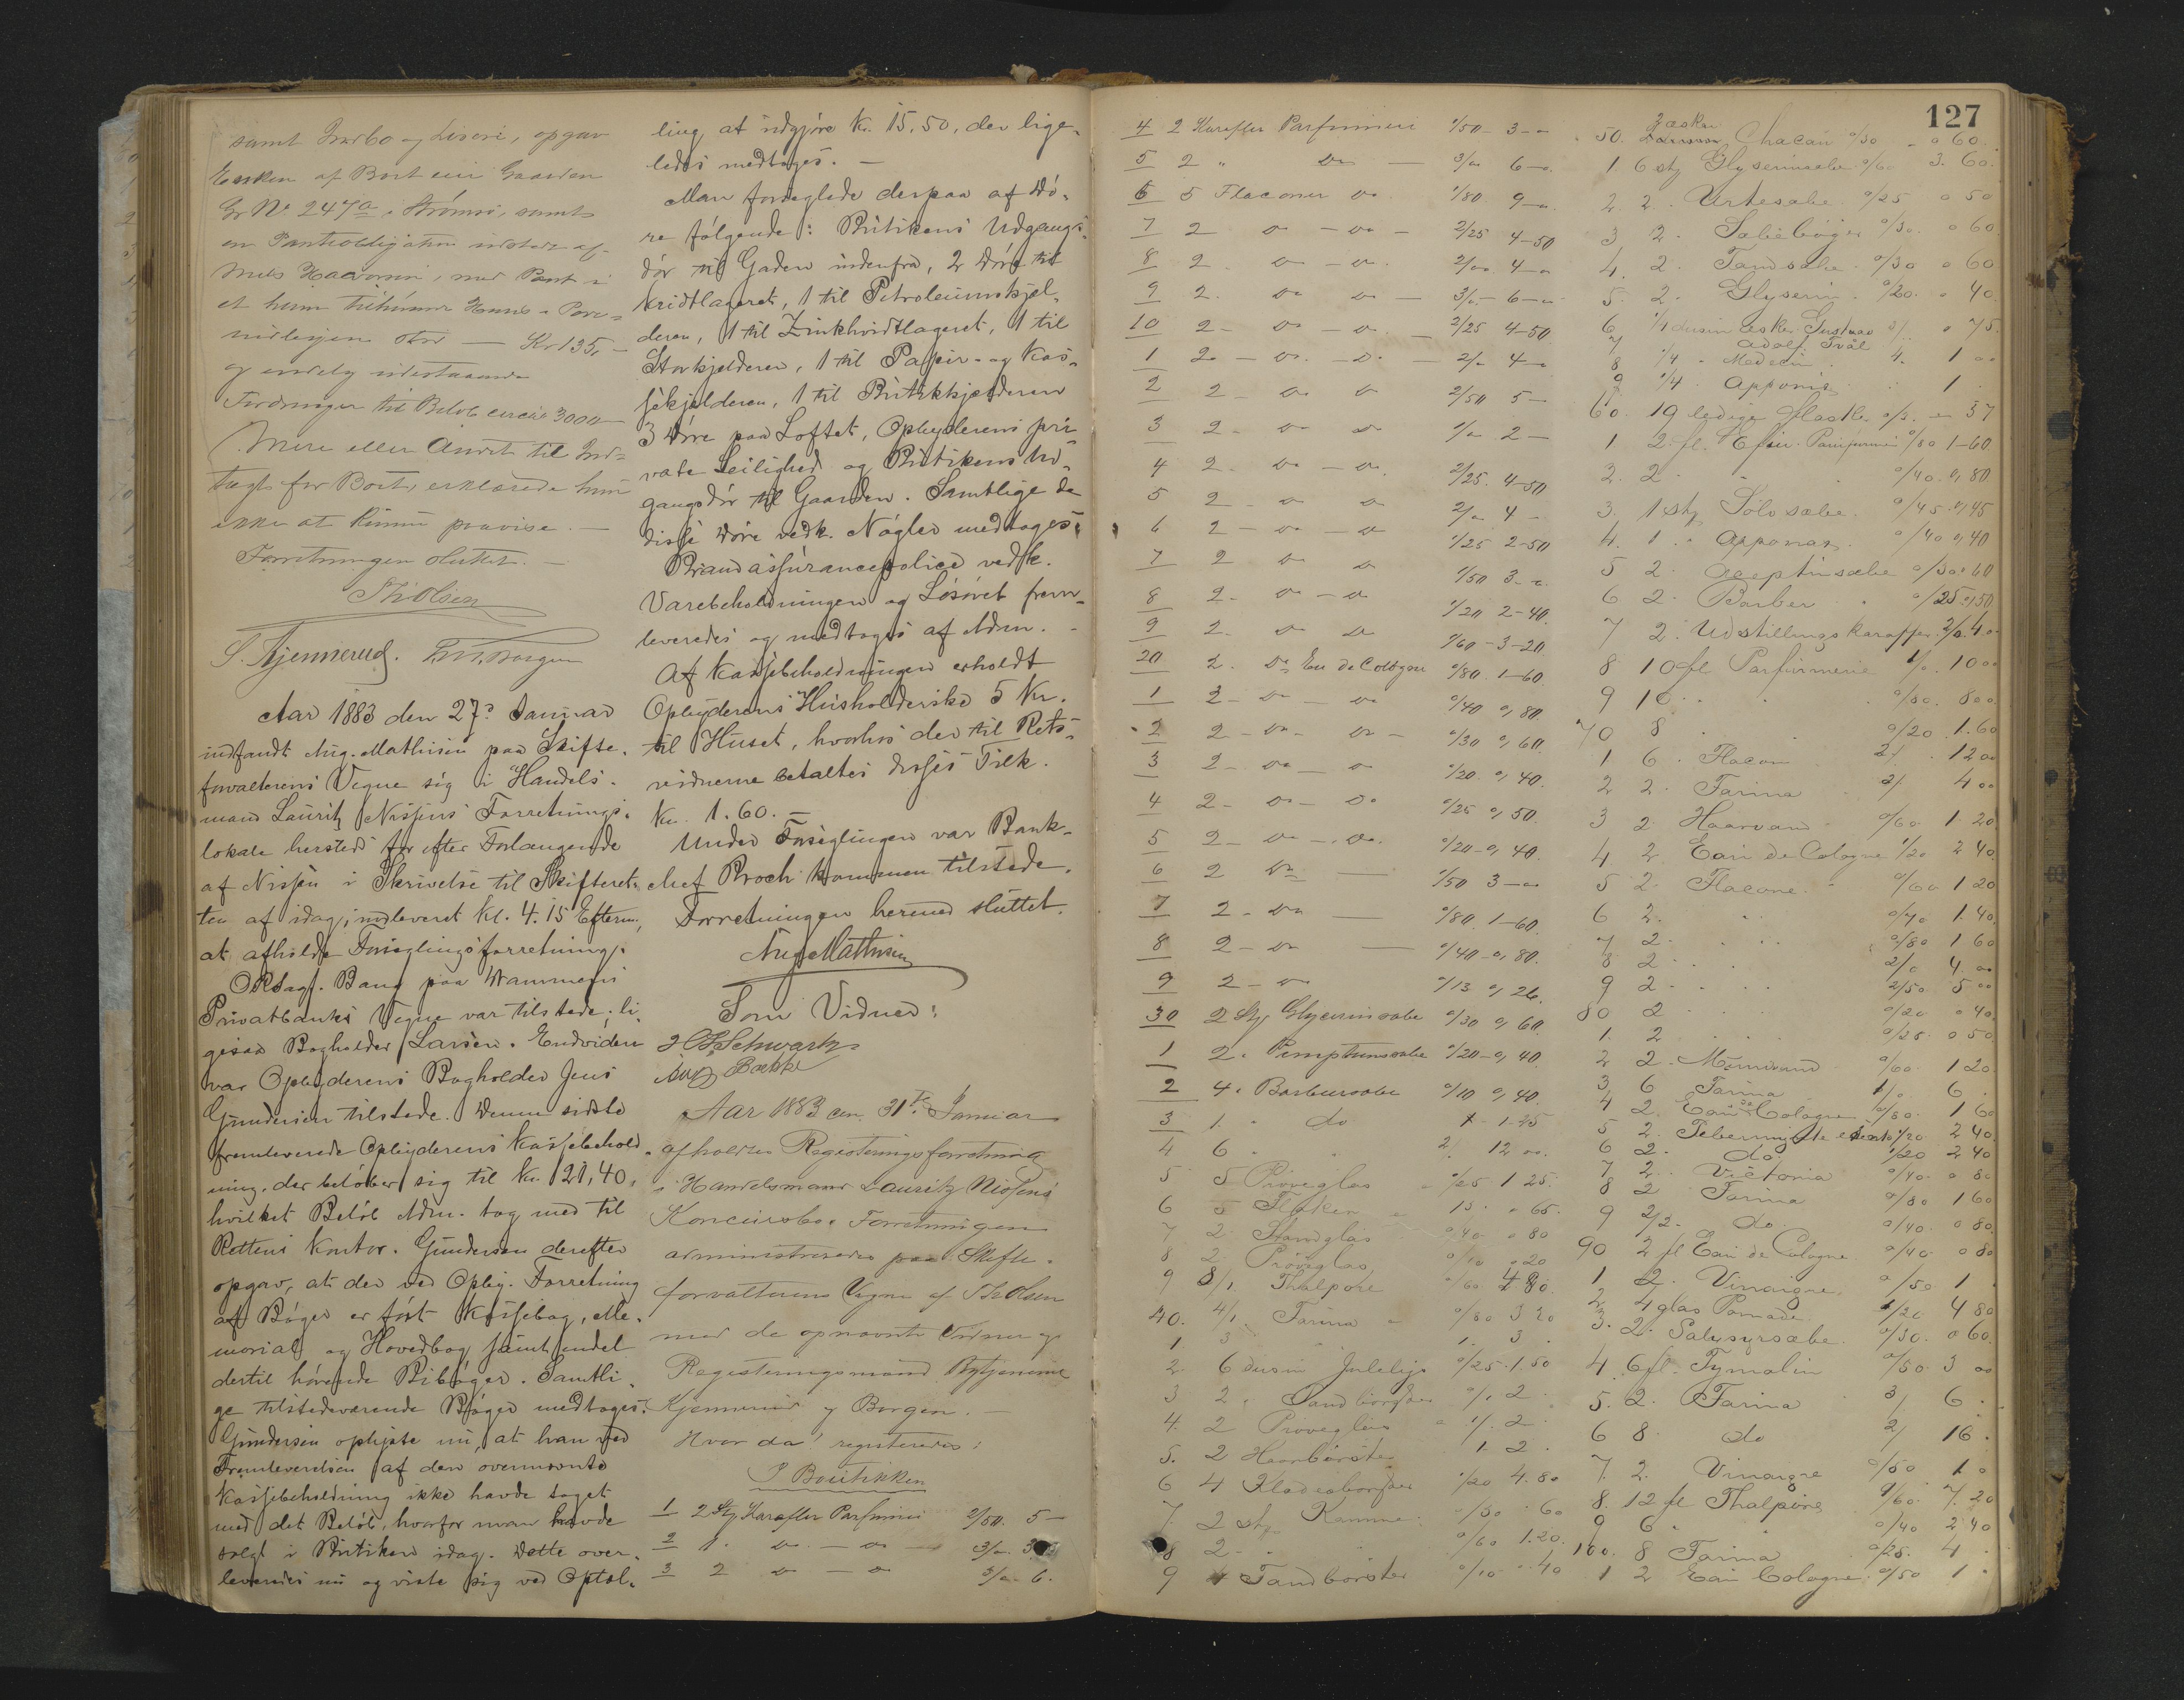 samt Indbo og Løsøre, opgav
Enken af Bort een Gaarden
Gr No 247a i Strømsø, samt
en Pantobligation udstedt af
Niels Haavorsen, med Pant i
et ham tilhørende Huus
stor — Kr 135,-
og endelig udestaaende
Fordringer til Beløb circa 3000
Mere eller Andet til Ind-
tægt for Boet, erklærede hun
ikke at kunne paavise. —
Forretningen sluttet. —
Th Olsen
S. Kjennerud. Borgen
Aar 1883 den 27de Januar
indfandt Aug. Mathisen paa Skifte-
forvalterens Vegne sig i Handels-
mand Lauritz Nissens Forretnings-
lokale hersteds for efter Forlangende
af Nissen i Skrivelse til Skifteret-
ten af idag, indleveret Kl. 4.15 Efterm.,
at afholde Forseglingsforretning.
ORsagf. Bang paa Drammens
Privatbanks Vegne var tilstede, li-
gesaa Bogholder Larsen. Endvidere
var Opbyderens Bogholder Jens
Gundersen tilstede. Denne sidste
fremleverede Opbyderens Kassebehold-
ning, der beløber sig til Kr. 121,40,
hvilket Beløb Adm. tog med til
Rettens Kontor. Gundersen derefter
opgav, at der ved Opby. Forretning
af Bøger er ført Kassebog, Me-
morial og Hovedbog samt endel
dertil hørende Bibøger. Samtli-
ge tilstedeværende Bøger medtoges.
Gundersen oplyste nu, at han ved
Fremleverelsen af den ovennævnte
Kassebeholdning ikke havde taget
med det Beløb, hvorfor man havde
solgt i Butiken idag. Dette over-
leveredes nu og viste sig ved Optæl-
ling at udgjøre Kr. 15,50, der lige-
ledes medtoges. —
Man forseglede derpaa af Dø-
re følgende: Butikens Udgangs-
dør til Gaden indenfra, 2 Døre til
Kridtlageret, 1 til Petroleumskjæl-
deren, 1 til Zinkhvidtlageret, 1 til
Storkjelderen, 1 til Papir- og Kas-
sekjelderen, 1 til Butikkjælderen
3 Døre paa Loftet, Opbyderens pri-
vate Leilighed og Butikens Ud-
gangsdør til Gaarden. Samtlige de
disse Døre vedk. Nøgler medtoges.
Brandassurancepolice vedk.
Varebeholdningen og Løsøret frem-
leveredes og medtoges af Adm. -
Af Kassebeholdningen erholdt
Opbyderens Husholderske 5 Kr.
til Huset, hvorhos der til Rets-
vidnerne betaltes disses Tilk.
Kr. 1.60. —
Under Forseglingen var Bank-
chef Broch kommen tilstede.
Forretningen hermed sluttet.
Aug Mathisen
Som Vidner:
Schwartz
Aug Bakke
Aar 1883 den 31te Januar
afholdtes Registeringsforretning
i Handelsmand Lauritz Nissens
Konkursbo. Forretningen
administreredes paa Skifte-
forvalterens Vegne af Th Olsen
med de opnævnte Vidner og
Registeringsmænd Bytjenerne
Kjennerud og Borgen. —
Hvor da registreredes:
I Boutikken
1 2 Stg Karafler Parfumeri 2/50. 5 —
2 1. do — do 3/- 3
3 2 do — do 3/- 6.
127
4 2 Karafler Parfumeri 1/50 - 3 -
5 2 " Do — 3/- 6 -
6 5 Flaconer do 1/80 9 -
7 2 do - do - 2/25 4-50
8 2 do - do. 2/- 4 -
9 2. do do - 3/- 6 -
10 2 - do - do. - 2/25 4-50
1 2 - do. - do - 2/- 4 -
2 2 - do do 2/50 5 -
3 2 - do do 1/- 2 -
4 2 - do - do. 2/25. 4-50
5 2 - do do 2/- 4 -
6 2 - do - do 1/25 2-50
7 2 do do 1/50 3 -
8 2 - do - do 1/20 2-40.
9 2. do do 1/60 - 3-20
20 2. Do Eau de Cologne 0/80. 1-60.
1 2 - do - do 0/40 0,80.
2 2 - do - do - 0/30 0,60.
3 2 - do - do 0/20. 0,40.
4 2 - do - do 0/25 0,50.
5 2 - do - do. 0/20 - 0,40.
6 2 do — 1/50 3 -
7 2 - do — 0/80. 1-60.
8 2 - do — 0/40 - 0,80.
9 2 - do 0/13 0,26.
30 2 Stg Glycerinsæbe 0/30 0,60.
1 2. sæbe 0/20 - 0,40.
2 4. Barbersæbe 0/10 0,40.
3 1. " do 1-25
4 6 " " 2/. 12 oo.
5 5 Prøveglas 0/25 1 25.
6 5 Flasker 13. 0 65.
7 2. Standglas 0/40 0 80
8 2. Prøveglas 0/10 0 20
9 8/1. Thalpore 0/60. 4 80.
40. 4/1. Farina 0/80 3 20
1 3 " 1. 3
2. 6 dusin Julelys 0/25. 1.50
3 2. Tandbørster 1/. 2
4. 2 Prøveglas 1/. 2
5. 2 Haarbørster 1. 2.
6 4 Klædesbørster 1/20 4.80
7. 2 stg Kamme. 0/30 60
8 2 - 0/60 1.20.
9 4 Tandbørster 0/10 40
50. Æsker Chacau 0/30 0 60
1 6 stg Glyserinsæbe 0/60 3.60.
2. 2. Urtesæbe 0/25 0 50
3 2. Sæbebøger 0/30. 0 60
4. 2. Tandsæbe 0/30 0 60
5. 2. Glyserin 0/20. 0 40
6 1/4 dusin Æsker Gustav 75.
7 Adolf Tvål
8 1/4 " Medecin. 4. 1 oo
9 1/4 " Apponis 1.
60. 19 ledige flasker 57
1 2. fl. Parfumeri 0/80 1-60.
2. 2. " 0/40. 0,80
3. 1 stg Solosæbe. 0/45. 0,45
4. 1. " Apponax. 0/40 0,40
5 2. Aseptinsæbe 0/30 0 60
6 2. Barber " 0/25 0,50
7 2. Udstillingskarafler. 2/0. 4 o
8 10 fl Parfumerie 1/0. 10 oo
9 10 " " 0/80. 8 oo
70 8 " 0/20. 1.60
1 6. Flacon 2/. 12 oo
2 2. Farina 2/. 4 oo
3 2. Haarvand 0/60. 1 20
4. 2. Eau de Cologne 1/20 2 40.
5 2. Flacone. 0/60 1 20
6 2. " " 0/70 1.40.
7 2. " " 0/80 1 60
8 2 " " 2/0 4. oo
9 2 " " 2/50 5 oo
80 2 " " 0/20 0 40
1. 2 " " 0/25. 0 50.
2 2. Mundvand 0/60. 1 20.
3 6 Farina 1/0. 6.
4 2. Eau de Cologne 0/80. 1 60
5 2. Pebermynte 1/20 2 40.
6 2. do 1/20 2 40
7 2. Victoria 0/40. 0 80
8 2 Farina 0/80 1 60
9 2/2. do 0/40. 0 80.
90 2 fl Eau de Cologne 0/40 0 80
1 2. Vinaigre 0/50 1.
2 4 glas Pomade 1/20 4 80
3. 2. Salysyrsæbe 0/30. 0 60.
4 6 fl. Tymolin 0/50. 3 oo
5. 2. Farina 3/ 6.
6 8. do 2/ 16.
7. 2. Vinaigre 0/50 1 o
8. 12 fl Thalpore 0/60. 7.20
9 6 " 0/40 2 40
100. 8 Farina 4.
1 2 Eau Cologne. 0/50 1.